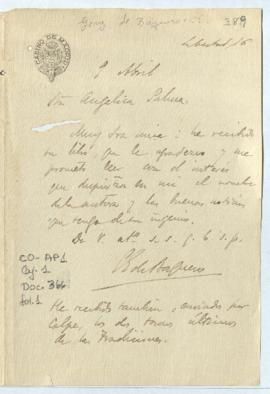 Gonz. de Baquero, E.
389
CASINO DE MADRID
Libertad 16
9 Abril
Sra Angelica Palma
Muy Sra mia: he recibido
su libro, que le agradezco y me
prometo leer con el interés
que despiertan en mi el nombre
de la autora y las buenas noticias
que tengo de su ingenio.
De V. atº. s. s. q. b. s. p.
E G de Baquero
CO-AP1
Caj. 1
Doc. 366
fol. 1
He recibido tambien, enviados por
Calpe, los dos tomos últimos
de las Tradiciones.